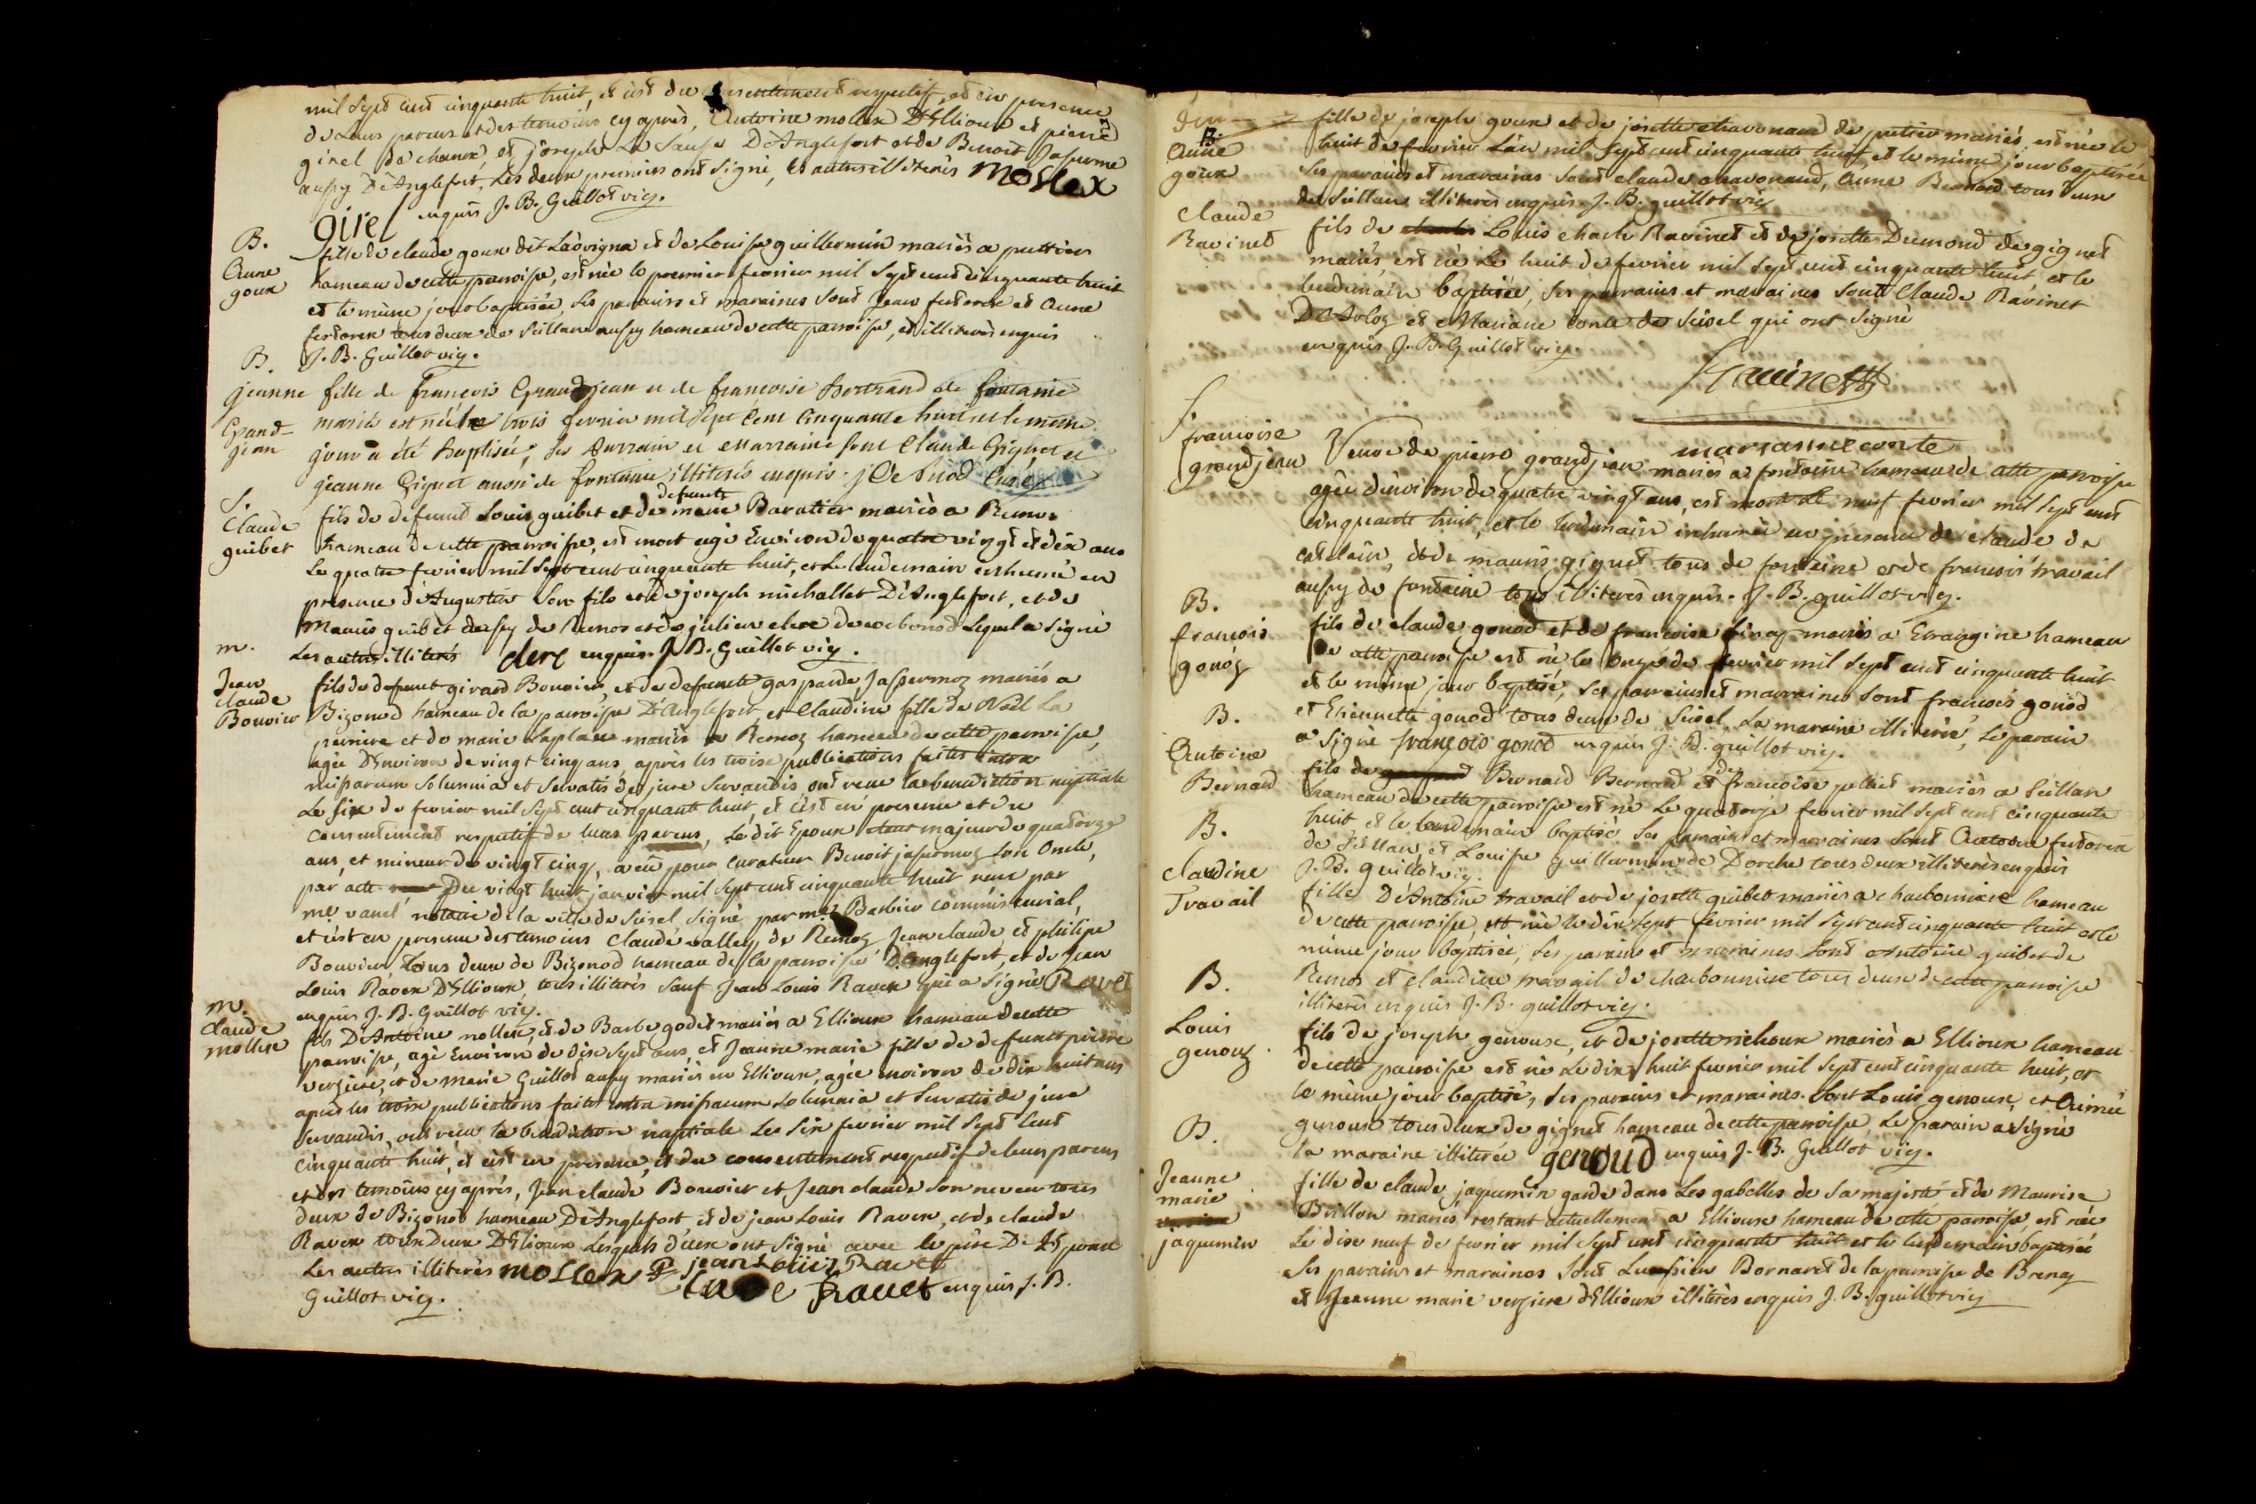 mil sept cent cinquante huit, et c'est du consentement respectif, et en presence
de leurs parens et des temoins cy après, Antoine mollex D'Ellioux et pierre
girel de chanux, et joseph La Sausse D'Anglefort et de Benoit Jasperme
aussy D'Anglefort, Les deux premiers ont signé, les autres illiterés mollex
girel enquis J. B. Guillot vic.
B.
Anne
goux
fille de claude goux dit Lavigna et de Louise guillermin mariés a puttier
hameau de cette paroisse, est née le premier fevrier mil sept cent cinquante huit
et le même jour baptisée, ses parains et maraines sont Jean futorex et Anne
futorex tous deux de Sillan aussy hameau de cette paroisse, et illiterés enquis
J. B. Guillot vic.
B.
jeanne
Grand-
jean
fille de françois Grandjean et de francoise Bertrand de fontaine
mariés est née le trois fevrier mil sept cent cinquante huit et le meme
jour a été baptisée; ses parrain et marraine sont Claude Gignet et
jeanne Gignet aussi de fontaine illiterés enquis. j De Buod Curé
S.
Claude
guibet
fils de defunt Louis guibet et de defuncte marie Baratier mariés a Remoz
hameau de cette paroisse, est mort agé Environ de quatre vingt et dix ans
Le quatre fevrier mil sept cent cinquante huit, et Le lendemain inhumé en
presence d'Augustin son fils et de joseph michallet D'Anglefort, et de
Mauris guibet aussy de Remos et de julien clerc de corbonod Lequel a signé
Les autres illiterés clerc enquis J. B. Guillot vic.
m.
Jean
claude
Bouvier
fils de defunct girard Bouvier, et de defuncte gasparde Jaspermoz mariés a
Bizonod hameau de la paroisse D'Anglefort, et Claudine fille de Noël La
peiriere et de marie Laplace mariés a Remoz hameau de cette paroisse,
agée D'Environ de vingt cinq ans après les trois publications faites intra
missarum solemnia et servatis de jure servandis ont receu la benediction nuptiale
Le six de fevrier mil sept cent cinquante huit, et c'est en presence et du
consentement respectif de leurs parens, Le dit Epoux etant majeur de quatorze
ans, et mineur de vingt cinq, a eû pour curateur Benoit jaspermoz son oncle,
par acte Du vingt huit janvier mil sept cent cinquante huit receu par
me vanel notaire de la ville de Seisel signé par me Barbier commis curial,
et c'est en presence des temoins claude vallet de Remoz Jean claude et philipe
Bouvier, tous deux de Bizonod hameau de la paroisse D'Anglefort, et de Jean
Louis Ravex D'Ellioux, tous illiterés sauf Jean Louis Ravex qui a signé Ravet
enquis J. B. Guillot vic.
m.
claude
mollex
fils D'Antoine mollex, et de Barbe godet mariés a Ellioux hameau de cette
paroisse, agé Environ de dix sept ans, et Jeanne marie fille de defunct pierre
verziere, et de marie Guillot aussy mariés en Ellioux, agée environ de dix huit ans
apres les trois publications faites intra missarum solemnia et servatis de jure
servandis, ont receu la benediction nuptiale Les six fevrier mil sept cent
cinquante huit, et c'est en presence, et du consentement respectif de leurs parens
et des temoins cy après, Jean claude Bouvier et Jean claude son neveu tous
deux de Bizonod hameau D'Anglefort, et de jean Louis Ravex, et de claude
Ravex tous Deux D'Ellioux Lesquels deux ont signé avec le pere De L'Epoux
Les autres illiterés mollex jean Louis Ravet
claude Ravet enquis J. B.
Guillot vic.
B.
Anne
goux
fille de joseph goux et de josette chavonaud de puttier mariés, est née le
huit de fevrier L'an mil sept cent cinquante huit et le même jour baptisée
ses parains et maraines sont claude chavonaud, Anne Bernard tous deux
de Sillan illiterés enquis J. B. guillot vic.
claude
Ravinet
fils de Louis charle Ravinet et de josette Dumond de gignet
mariés est né Le huit de fevrier mil sept cent cinquante huit, et le
lendemain baptisé, ses parrains et maraines sont Claude Ravinet
D'Arloz et Mariane conte de Seisel qui ont signé
enquis J. B. Guillot vic.
Ravinet
marianne conte
S.
francoise
grandjean
Veuve de pierre grandjean mariés a fontaine hameau de cette paroisse
agée d'environ de quatre vingt ans, est morte Le neuf fevrier mil sept cent
cinquante huit, et le lendemain inhumée en presence de claude de
et de mauris gignet tous de fontaine et de francois travail
aussy de fontaine tous illiterés enquis. J. B. guillot vic.
B.
francois
gonoz
fils de claude gonod et de francoise finaz mariés a Etrangine hameau
de cette paroisse est né le onze de fevrier mil sept cent cinquante huit
et le même jour baptisé, ses parrains et maraines sont francois gonod
et Etiennette gonod tous deux de Seisel, La maraine illiterée, Le parain
a signé françois gonod enquis J. B. guillot vic.
B.
Antoine
Bernard
fils de Bernard Bernard et de francoise pellait mariés a Sillan
hameau de cette paroisse est né Le quatorze fevrier mil sept cent cinquante
huit et le lendemain baptisé ses parains et maraines sont Antoine futorex
de Sillan, et Louise guillermin de Dorche tous deux illiterés enquis
J. B. guillot vic.
B.
claudine
Travail
fille D'Antoine travail et de josette guibet mariés a charbonniere hameau
de cette paroisse, est née le dix sept fevrier mil sept cent cinquante huit et le
même jour baptisée, ses parains et maraines sont Antoine guibet de
Remos et claudine travail de charbonniere tous deux de cette paroisse
illiterés enquis J. B. guillot vic.
B.
Louis
genouz
fils de joseph genoux, et de josette richoux mariés a Ellioux hameau
de cette paroisse est né Le dix huit fevrier mil sept cent cinquante huit, et
le même jour baptisé, ses parains et maraines sont Louis genoux, et Aimée
genoux tous deux de gignet hameau de cette paroisse, Le parain a signé
la maraine illiterée genoud enquis J. B. Guillot vic.
B.
Jeanne
marie
jaquemin
fille de claude jaquemin garde dans Les gabelles de sa majesté et de Maurise
Brillon mariés restant actuellement a Ellioux hameau de cette paroisse, est née
Le dix neuf de fevrier mil sept cent cinquante huit et le lendemain baptisée
ses parains et maraines sont Bornaret de la paroisse de Brenaz
et Jeanne marie verziere d'Ellioux illiterés enquis J. B. guillot vic